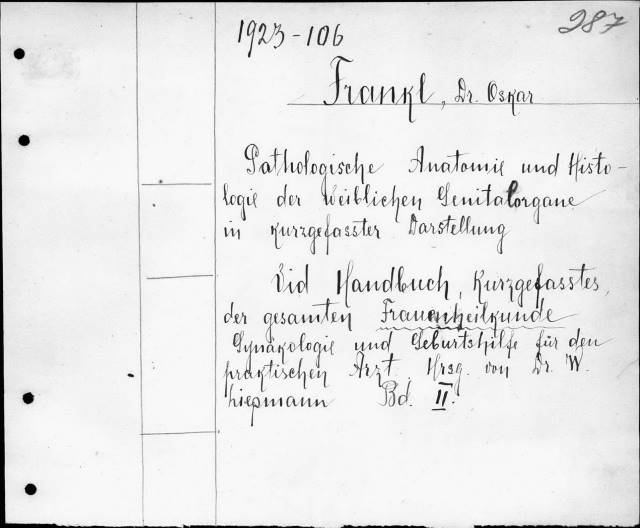 287
1923-106
Frankl, Dr. Oskar
Pathologische Anatomie und Histo-
logie der weiblichen Genitalorgane
in kurzgefasster Darstellung
Vid Handbuch, Kurzgefasstes,
der gesamten Frauenheilkunde
Gynäkologie und Geburtshilfe für den
praktischen Arzt. Hrsg. von Dr. W.
Liepmann Bd. II.